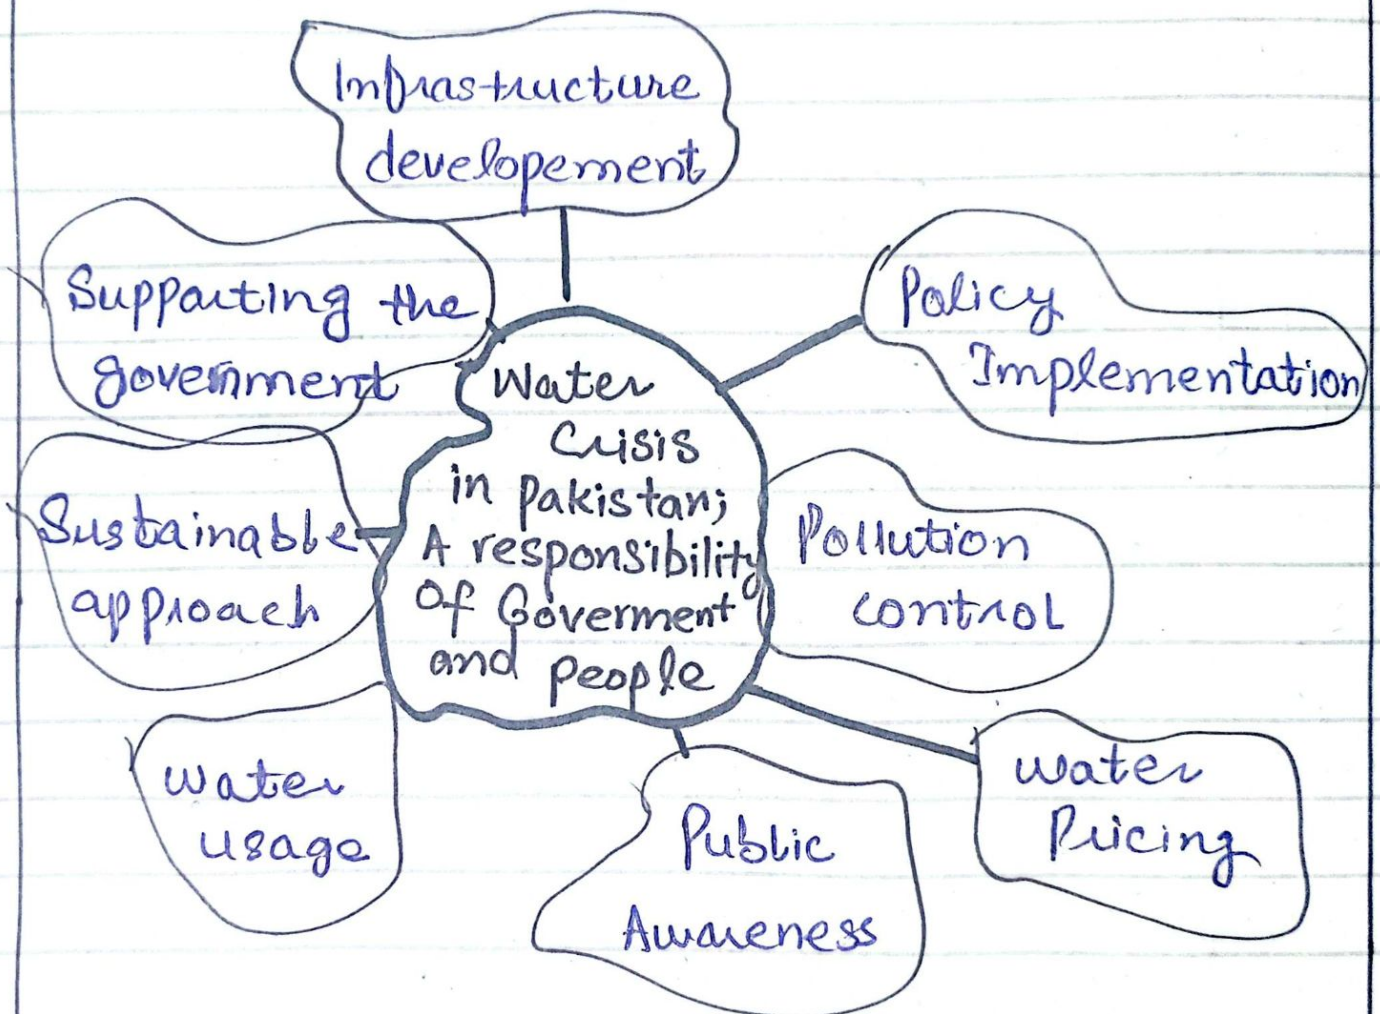 Infrastructure
developement
Supporting the
government
Policy
Implementation
Water
Crisis
in Pakistan;
A responsibility
Of Goverment
and people
Sustainable
approach
Pollution
control
Water
usage
Public
Awareness
Water
Pricing